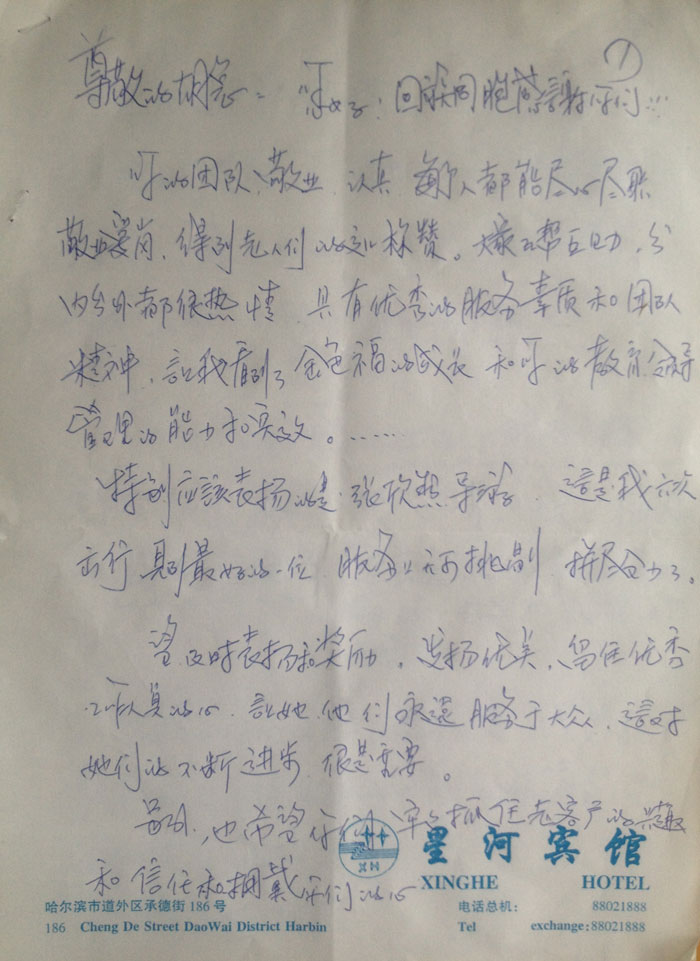 ①
尊敬的胡总：您好！回族同胞感謝你们…
你的团队、敬业、认真、每个人都能尽心尽职
敬业爱岗，得到老人们的交口称赞。互帮互助，分
内分外都很热情，具有优秀的服务素质和团队
精神，讓我看到了金色福的成长和你的教育领导
管理的能力和实效。……
特别应該表扬的是：张欣然导游，這是我六次
出行，見到最好的一位，服务上无可挑剔，拼尽全力了。
望及时表扬和奖励，发扬优美，留住优秀
工作人員的心，讓她、他们永遠服务于大众，這对
她们的不断进步，很是重要。
另外，也希望你们牢牢抓住老客户的興趣
和信任和拥戴你们的心
星河宾馆
XH
XINGHE HOTEL
哈尔滨市道外区承德街186号 电话总机： 88021888
186 Cheng De Street DaoWai District Harbin Tel exchange:88021888